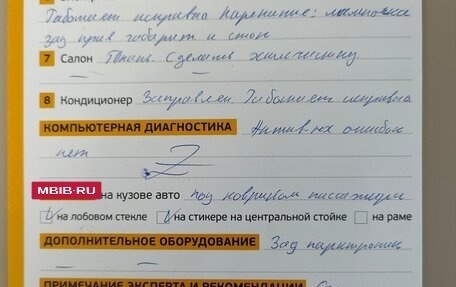 Работает исправно Нарекание: лампочка
зад прав габарит и стоп
7 Салон Сделать химчистку
8 Кондиционер Заправлен. Работает исправно
КОМПЬЮТЕРНАЯ ДИАГНОСТИКА Активных ошибок
нет
MBIB-RU
на кузове авто под ковриком пассажира
на лобовом стекле на стикере на центральной стойке на раме
ДОПОЛНИТЕЛЬНОЕ ОБОРУДОВАНИЕ Зад парктроник
ПРИМЕЧАНИЕ ЭКСПЕРТА И РЕКОМЕНДАЦИИ